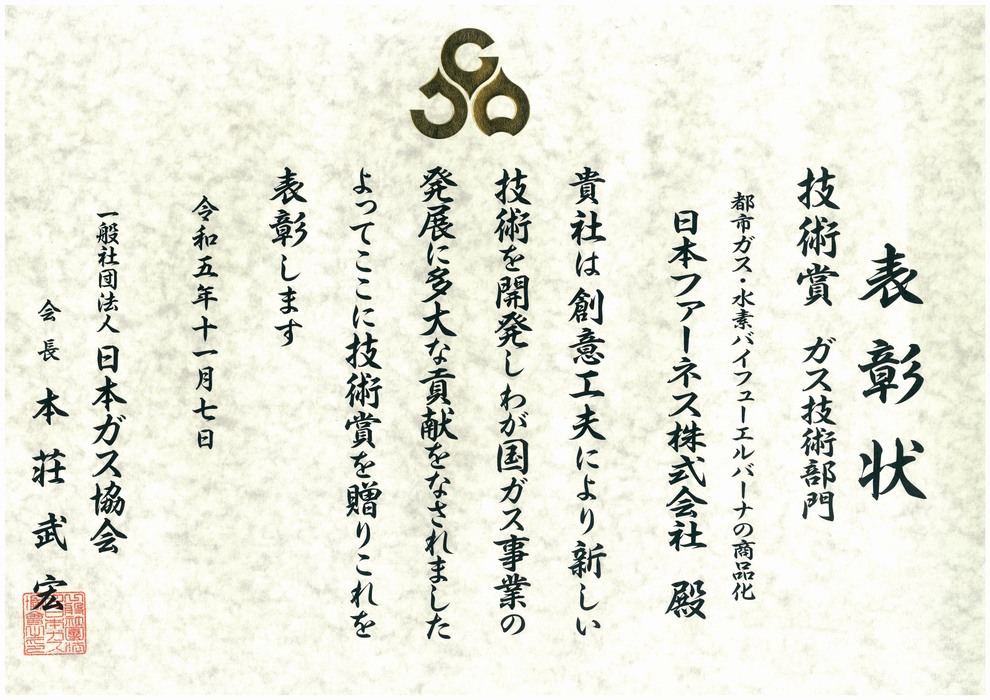 表彰状
技術賞 ガス技術部門
都市ガス・水素バイフューエルバーナの商品化
日本ファーネス株式会社 殿
貴社は創意工夫により新しい
技術を開発しわが国ガス事業の
発展に多大な貢献をなされました
よってここに技術賞を贈りこれを
表彰します
令和五年十一月七日
一般社団法人日本ガス協会
会長 本荘武宏